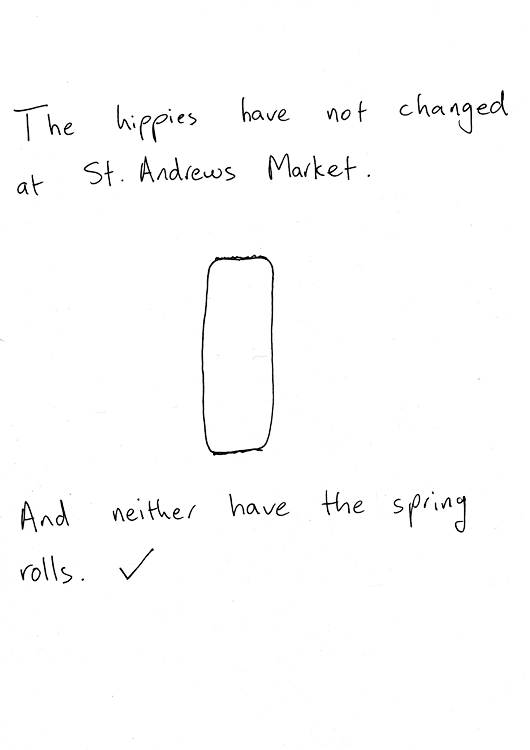 The hippies have not changed
at St. Andrews Market.
And neither have the spring
rolls. ✓